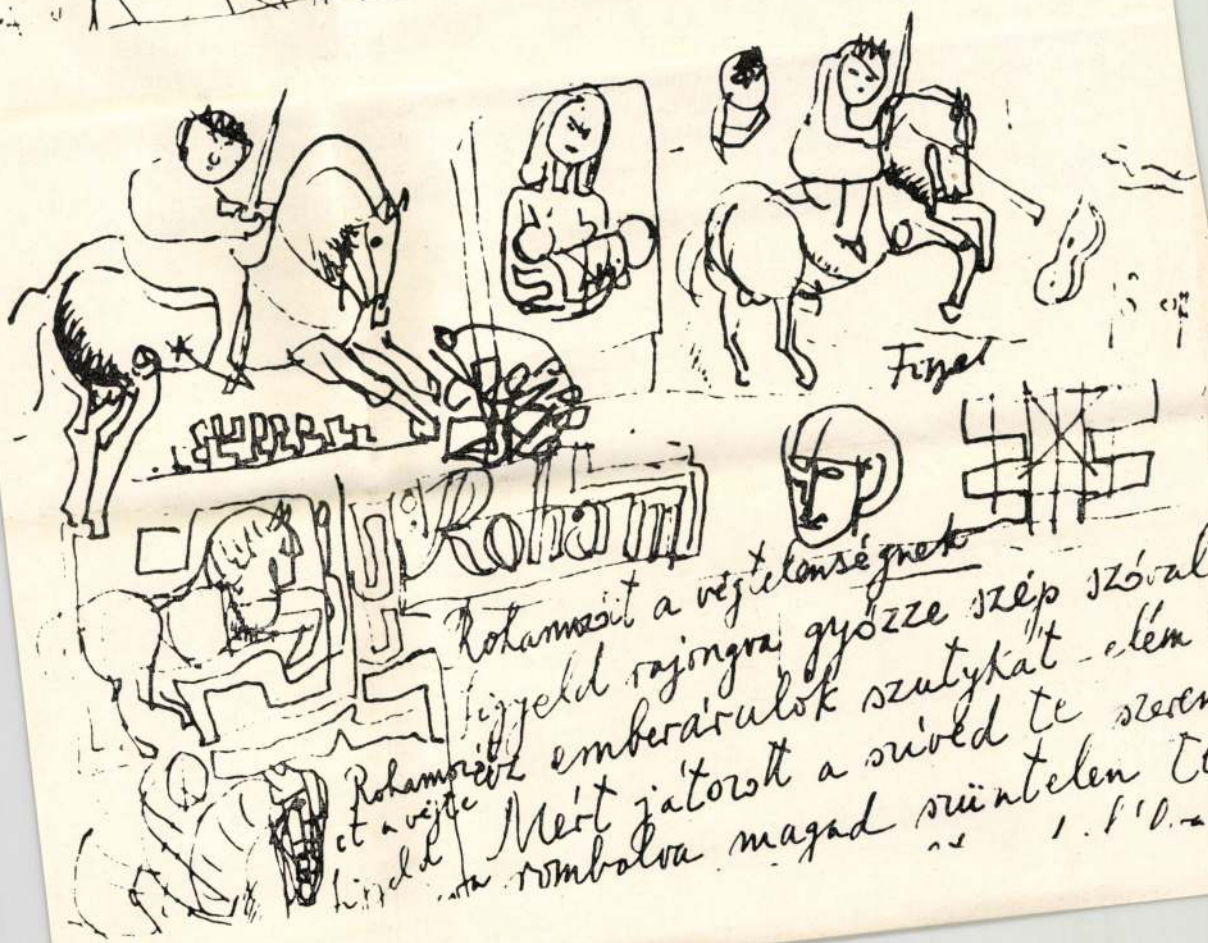 Figyel
Roham
Rohamozót a végtelenségnek
figyeld rajongva győzze szép szóval
emberárulók szutykát elém
Mért játszott a szíved te szeren
rombolva magad szüntelen
Rohamozó
a végte